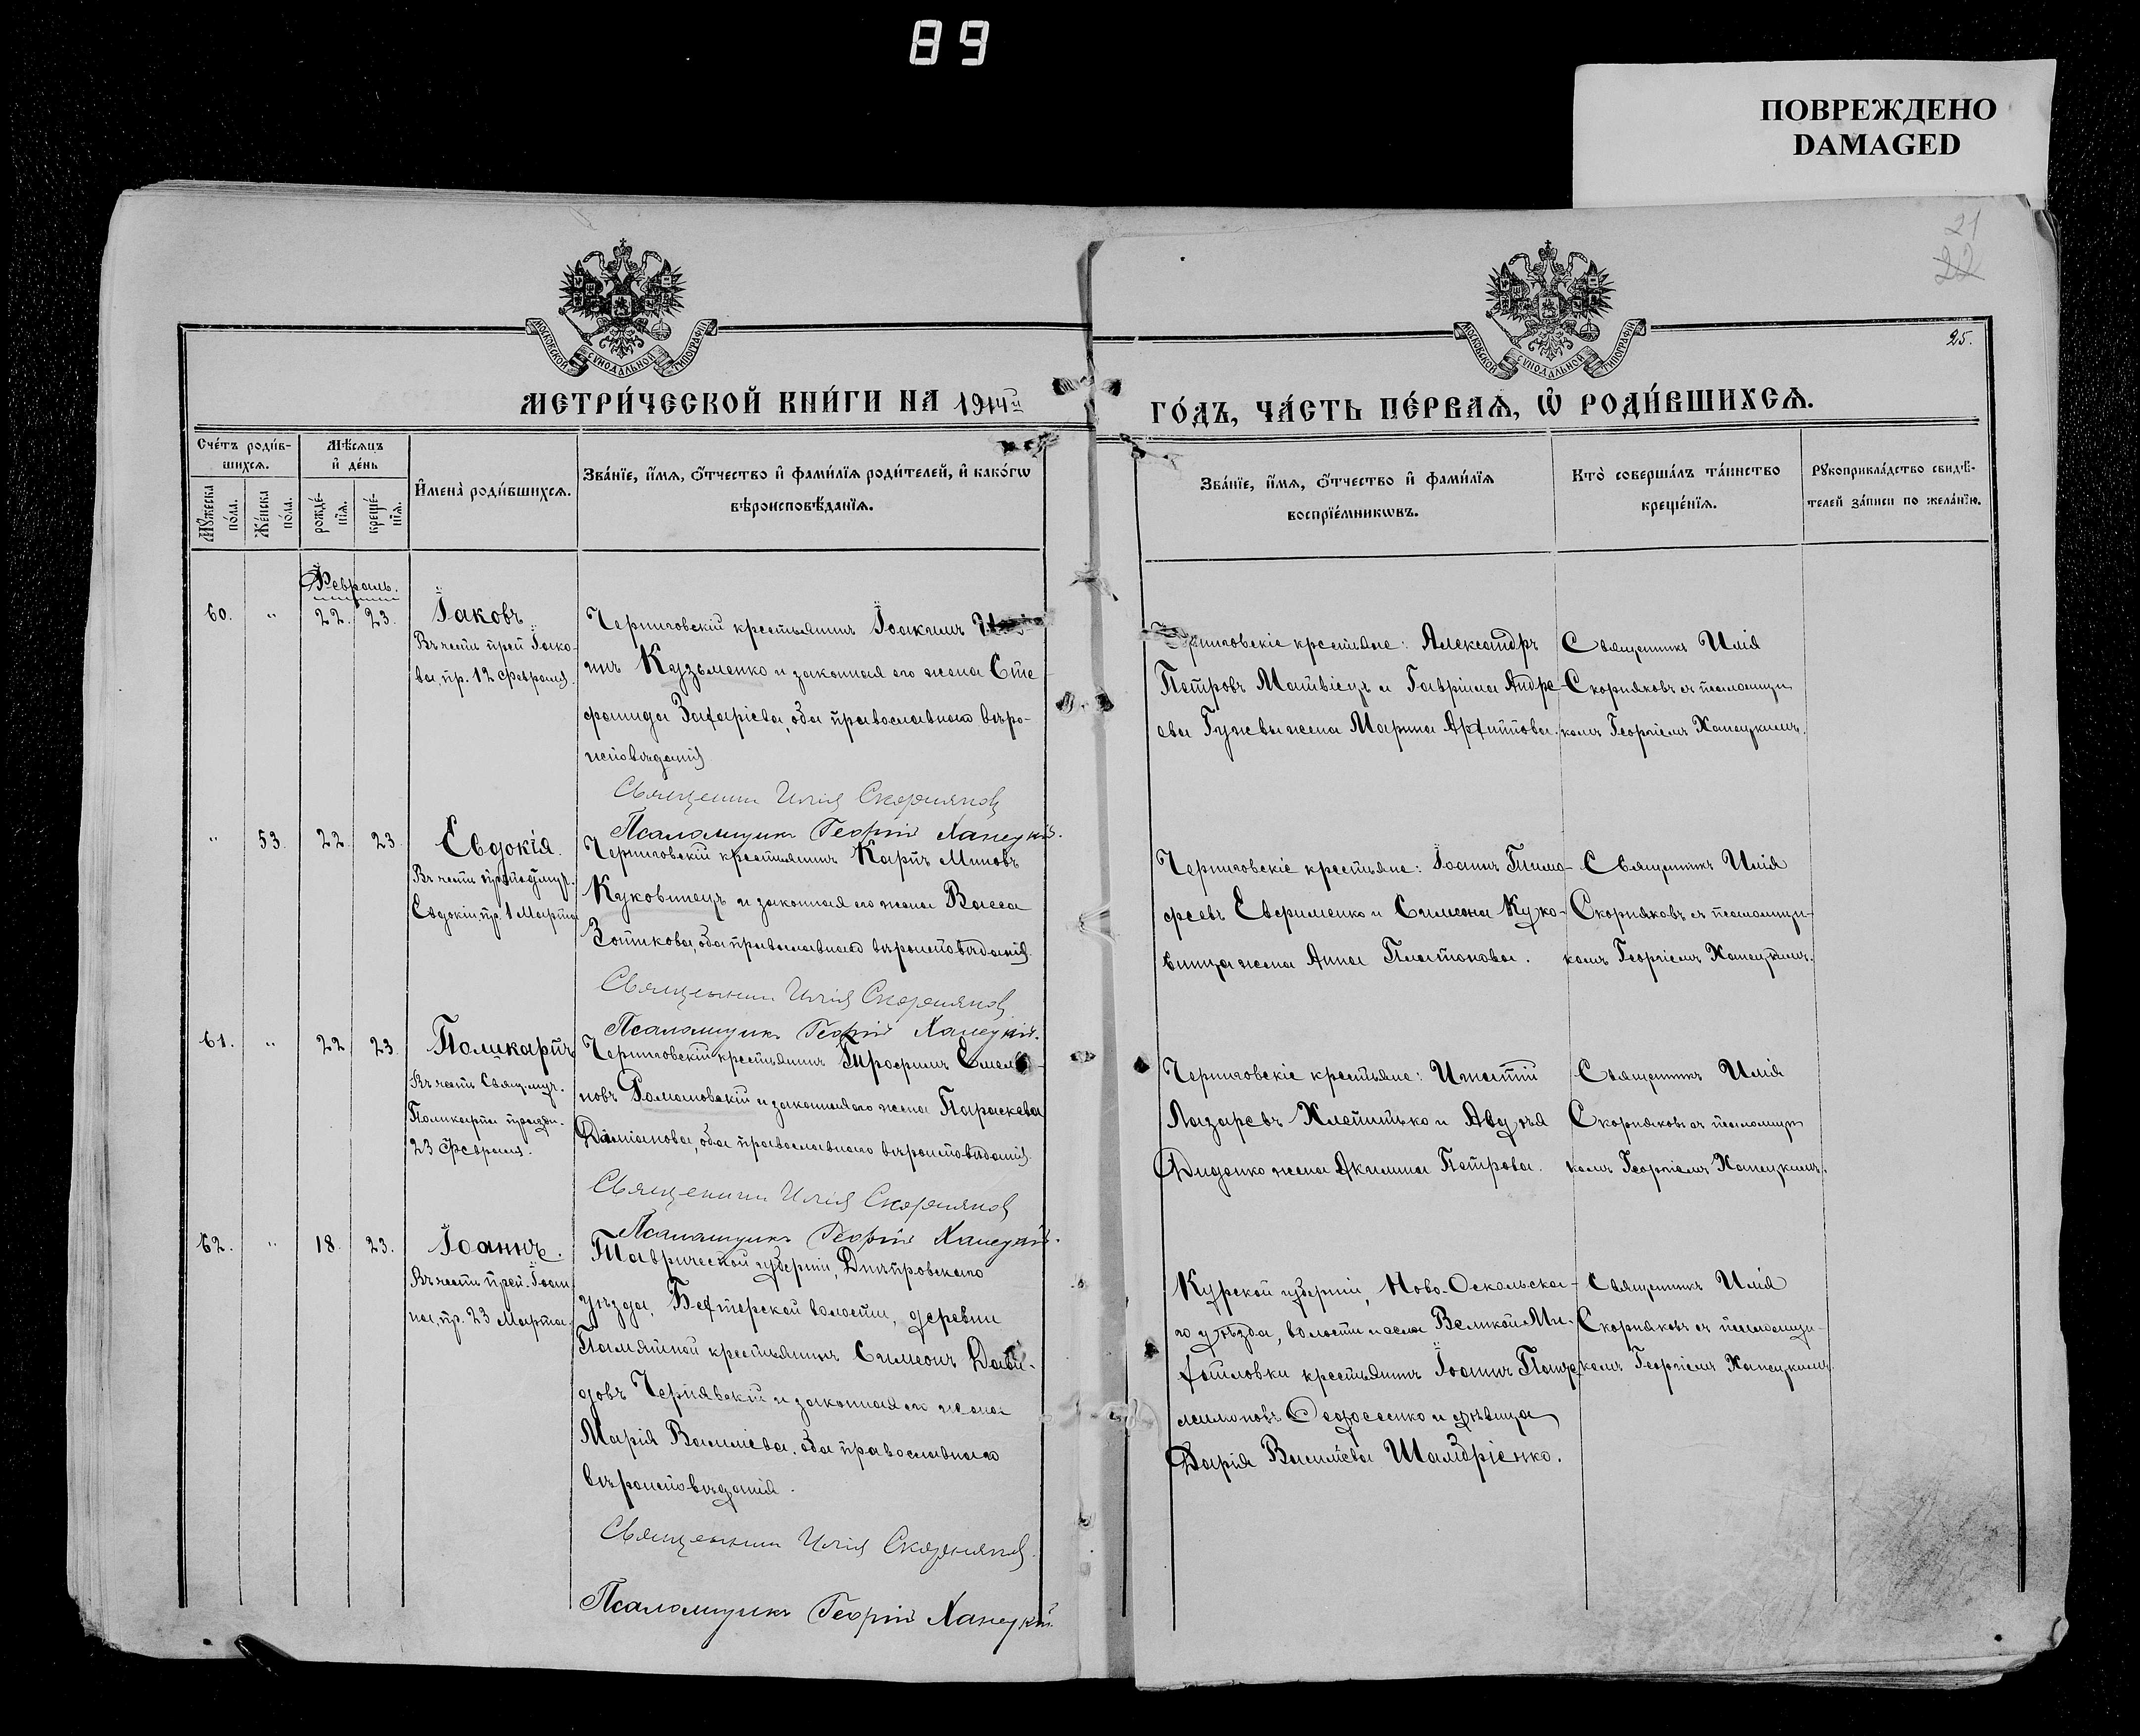 89
ПОВРЕЖДЕНО
DAMAGED
21
22
25.
МОСКОВСКОЙ СѴНОДАЛЬНОЙ ТИПОГРАФІИ
МОСКОВСКОЙ СѴНОДАЛЬНОЙ ТИПОГРАФІИ
МЕТРИ́ЧЕСКОЙ КНИ́ГИ НА 1914й
ГО́ДЪ, ЧА́СТЬ ПЕ́РВАѦ, Ѡ҆ РОДИ́ВШИХСѦ.
Сче́тъ роди́в-
шихсѧ.
Мѣ́сяцъ
и҆ де́нь
Мꙋ́жеска
по́ла.
Же́нска
по́ла.
рожде́-
нїѧ.
креще́-
нїѧ.
И҆мена̀ роди́вшихсѧ.
Зва́нїе, и҆́мѧ, ѻ҆́тчество и҆ фамі́лїѧ роди́телей, и҆ како́гѡ
вѣроисповѣ́данїѧ.
Зва́нїе, и҆́мѧ, ѻ҆́тчество и҆ фамі́лїѧ
воспрїе́мникѡвъ.
Кто̀ соверша́лъ та́инство
креще́нїѧ.
Рꙋкоприкла́дство свидѣ́-
телей за́писи по жела́нїю.
Февраль.
60. " 22. 23.
Іаковъ
Въ честь преп. Іако-
ва, пр. 12 февраля.
Черниговскій крестьянинъ Іоакимъ
инъ Кузьменко и законная его жена Сте
фанида Захаріева, оба православнаго вѣро-
исповѣданія
Священникъ Илія Скорняковъ
Псаломщикъ Георгій Ханецкій.
Черниговскіе крестьяне: Александръ
Петровъ Матвіецъ и Гавріила Андре-
ева Гужвы жена Марина Архиппова.
Священникъ Илія
Скорняковъ съ псаломщи
комъ Георгіемъ Ханецкимъ.
" 53. 22. 23
Евдокія.
Въ честь преподмуч.
Евдокіи, пр. 1 Марта
Черниговскій крестьянинъ Карпъ Миновъ
Куковинецъ и законная его жена Васса
Зотикова, оба православнаго вѣроисповѣданія.
Священникъ Илія Скорняковъ
Псаломщикъ Георгій Ханецкій.
Черниговскіе крестьяне: Іоаннъ Тимо-
феевъ Ефименко и Симеона Куко-
винца жена Анна Платонова.
Священникъ Илія
Скорняковъ съ псаломщи-
комъ Георгіемъ Ханецкимъ.
61. " 22 23.
Поликарпъ
Въ честь Свящ.-муч.
Поликарпа праздн.
23 февраля.
Черниговскій крестьянинъ Трофимъ Емелья-
новъ Романовскій и законная его жена Параскева
Даміанова, оба православнаго вѣроисповѣданія.
Священникъ Илія Скорняковъ
Псаломщикъ Георгій Ханецкій.
Черниговскіе крестьяне: Игнатій
Лазаревъ Клепитько и Авдѣя
Диденко жена Акилина Петрова.
Священникъ Илія
Скорняковъ съ псаломщи
комъ Георгіемъ Ханецкимъ.
62. " 18. 23.
Іоаннъ.
Въ честь преп. Іоан
на, пр. 23 Марта.
Таврической губерніи, Днѣпровскаго
уѣзда, Бехтерской волости, деревни
Памятной крестьянинъ Симеонъ Дави-
довъ Чернявскій и законная его жена
Марія Василіева, оба православнаго
вѣроисповѣданія.
Священникъ Илія Скорняковъ.
Псаломщикъ Георгій Ханецкій.
Курской губерніи, Ново-Оскольска-
го уѣзда, волости и села Великой-Ми-
хайловки крестьянинъ Іоаннъ Панте
леимоновъ Федосеенко и дѣвица
Дарія Василіева Шамбріенко.
Священникъ Илія
Скорняковъ съ псаломщи-
комъ Георгіемъ Ханецкимъ.